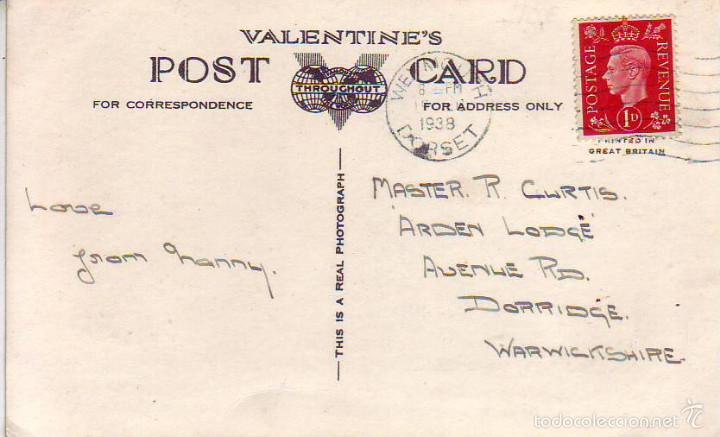 VALENTINE'S
POST CARD
THROUGHOUT
FOR CORRESPONDENCE
FOR ADDRESS ONLY
WEYMOUTH
1938
DORSET
POSTAGE
REVENUE
1D
PRINTED IN
GREAT BRITAIN
Love
from Nanny.
THIS IS A REAL PHOTOGRAPH
MASTER. R. CURTIS.
'ARDEN LODGE'
AVENUE RD.
DORRIDGE.
WARWICKSHIRE.
todocoleccion.net